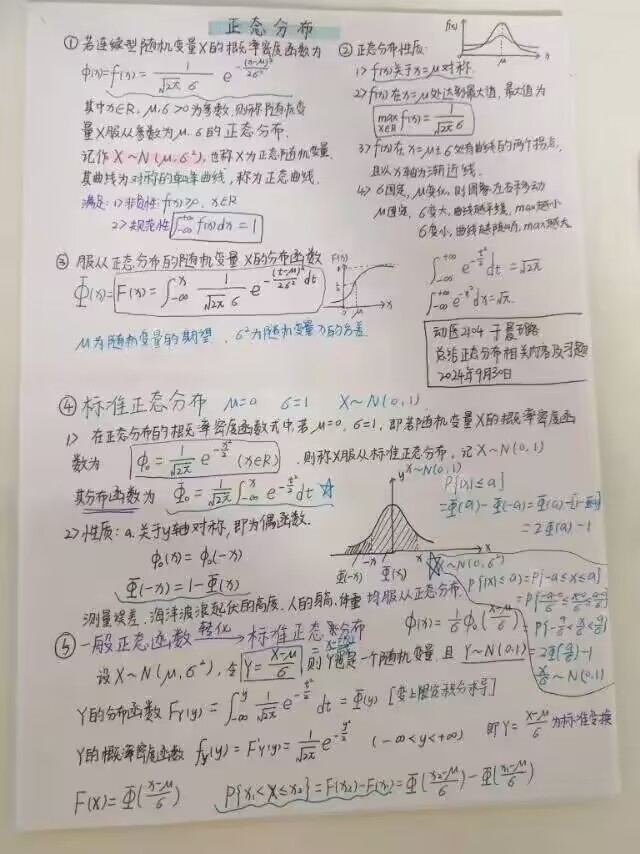 正态分布
① 若连续型随机变量X的概率密度函数为
φ(x)=f(x)= 1/(√2π σ) e^-(x-μ)²/2σ²
其中x∈R, μ,σ>0为参数,则称随机变
量X服从参数为μ,σ的正态分布.
记作 X~N(μ,σ²), 也称X为正态随机变量.
其曲线为对称的钟峰曲线, 称为正态曲线.
满足: 1> 非负性 f(x)≥0, x∈R
2> 规范性 ∫-∞^+∞ f(x)dx=1
② 正态分布性质:
f(x)
μ
x
1> f(x)关于x=μ对称.
2> f(x)在x=μ处达到最大值, 最大值为
max x∈R f(x)= 1/(√2π σ)
3> f(x)在x=μ±σ处有曲线的两个拐点,
且以x轴为渐近线.
4> σ固定, μ变化, 则图象左右移动
μ固定, σ变大,曲线越平缓, max越小
σ变小,曲线越陡峭, max越大
③ 服从正态分布的随机变量X的分布函数
Φ(x)= F(x)= ∫-∞^x 1/(√2π σ) e^-(t-μ)²/2σ² dt
F(x)
μ
x
μ为随机变量的期望, σ²为随机变量X的方差.
∫-∞^+∞ e^-t²/2 dt = √2π
∫-∞^+∞ e^-x² dx=√π.
动医2104
总结正态分布相关内容及习题
2024年9月30日
④ 标准正态分布 μ=0 σ=1 X~N(0,1)
1> 在正态分布的概率密度函数式中,若μ=0, σ=1, 即若随机变量X的概率密度函
数为 φ₀= 1/√2π e^-x²/2 (x∈R) , 则称X服从标准正态分布, 记X~N(0,1)
其分布函数为 Φ₀= 1/√2π ∫-∞^x e^-t²/2 dt ☆
2> 性质: a.关于y轴对称, 即为偶函数.
φ₀(x)=φ₀(-x)
Φ(-x)=1-Φ(x)
y X~N(0,1)
-x x x
Φ(-x) Φ(x)
P{|X|≤a}
=Φ(a)-Φ(-a)=Φ(a)-[1-Φ(a)]
=2Φ(a)-1
☆ X~N(0,σ²)
P{|X|≤a}=P{-a≤x≤a}
=P{(-a-0)/σ≤(x-0)/σ≤(a-0)/σ}
=P{-a/σ≤x/σ≤a/σ}
=2Φ(a/σ)-1
x/σ~N(0,1)
测量误差, 海洋波浪起伏的高度, 人的身高, 体重 均服从正态分布.
φ(x)= 1/σ φ₀((x-μ)/σ)
⑤ 一般正态函数 转化→ 标准正态分布
设X~N(μ,σ²), 令 Y=(X-μ)/σ 则Y也是一个随机变量, 且 Y~N(0,1)
Y的分布函数 FY(y)= ∫-∞^y 1/√2π e^-t²/2 dt =Φ(y) [变上限定积分求导]
Y的概率密度函数 fY(y)=F'Y(y)= 1/√2π e^-y²/2 (-∞<y<+∞) 即Y=(X-μ)/σ为标准变换
F(x)=Φ((x-μ)/σ) P{x₁<X≤x₂}=F(x₂)-F(x₁)=Φ((x₂-μ)/σ)-Φ((x₁-μ)/σ)